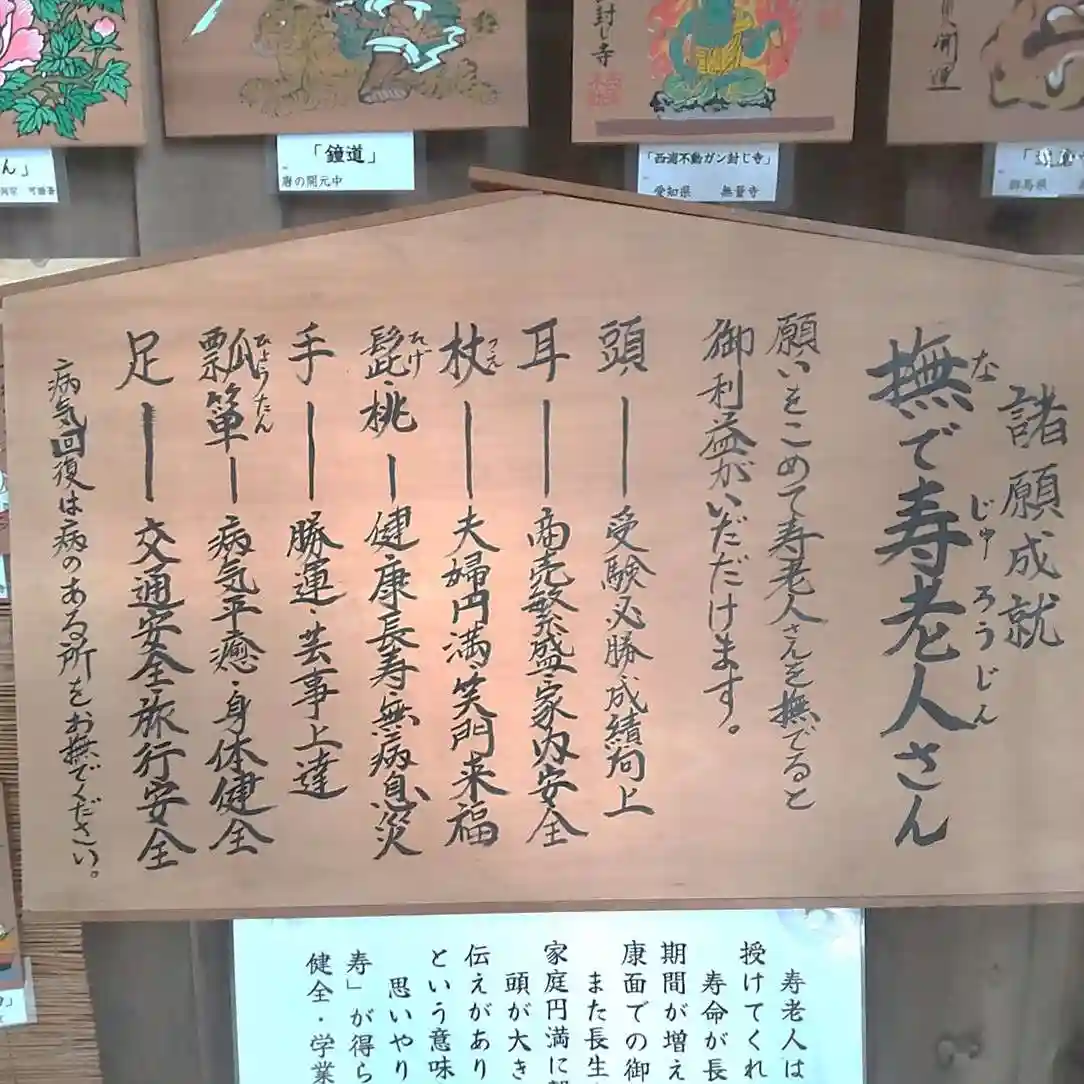 ん」
「鐘道」
唐の開元中
封じ寺
「西浦不動ガン封じ寺」
愛知県 無量寺
開運
群馬県
諸願成就
撫で寿老人さん
な じゅろうじん
願いをこめて寿老人さんを撫でると
御利益がいだだけます。
頭―受験必勝成績向上
耳―商売繁盛・家内安全
杖―夫婦円満・笑門来福
つえ
髭・桃―健康長寿・無病息災
ひげ
手―勝運・芸事上達
瓢箪―病気平癒・身体健全
ひょうたん
足―交通安全・旅行安全
病気回復は病のある所をお撫でください。
寿老人は
授けてくれ
寿命が長
期間が増え
康面での御
また長生
家庭円満に
頭が大き
伝えがあり
という意味
思いやり
寿」が得ら
健全・学業